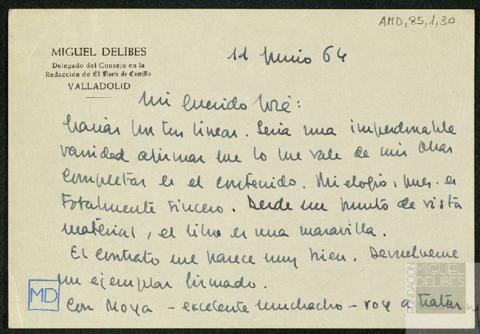 AMD,85,1,30
MIGUEL DELIBES
Delegado del Consejo en la
Redacción de El Norte de Castilla
VALLADOLID
11 Junio 64
Mi querido José:
Gracias por tus líneas. Sería una imperdonable
vanidad afirmar que lo que vale de mis Obras
Completas es el contenido. Mi elogio, pues, es
totalmente sincero. Desde un punto de vista
material, el libro es una maravilla.
El contrato me parece muy bien. Devuelveme
un ejemplar firmado.
Con Moya - excelente muchacho - voy a tratar
MD
FUNDACIÓN
MIGUEL
DELIBES